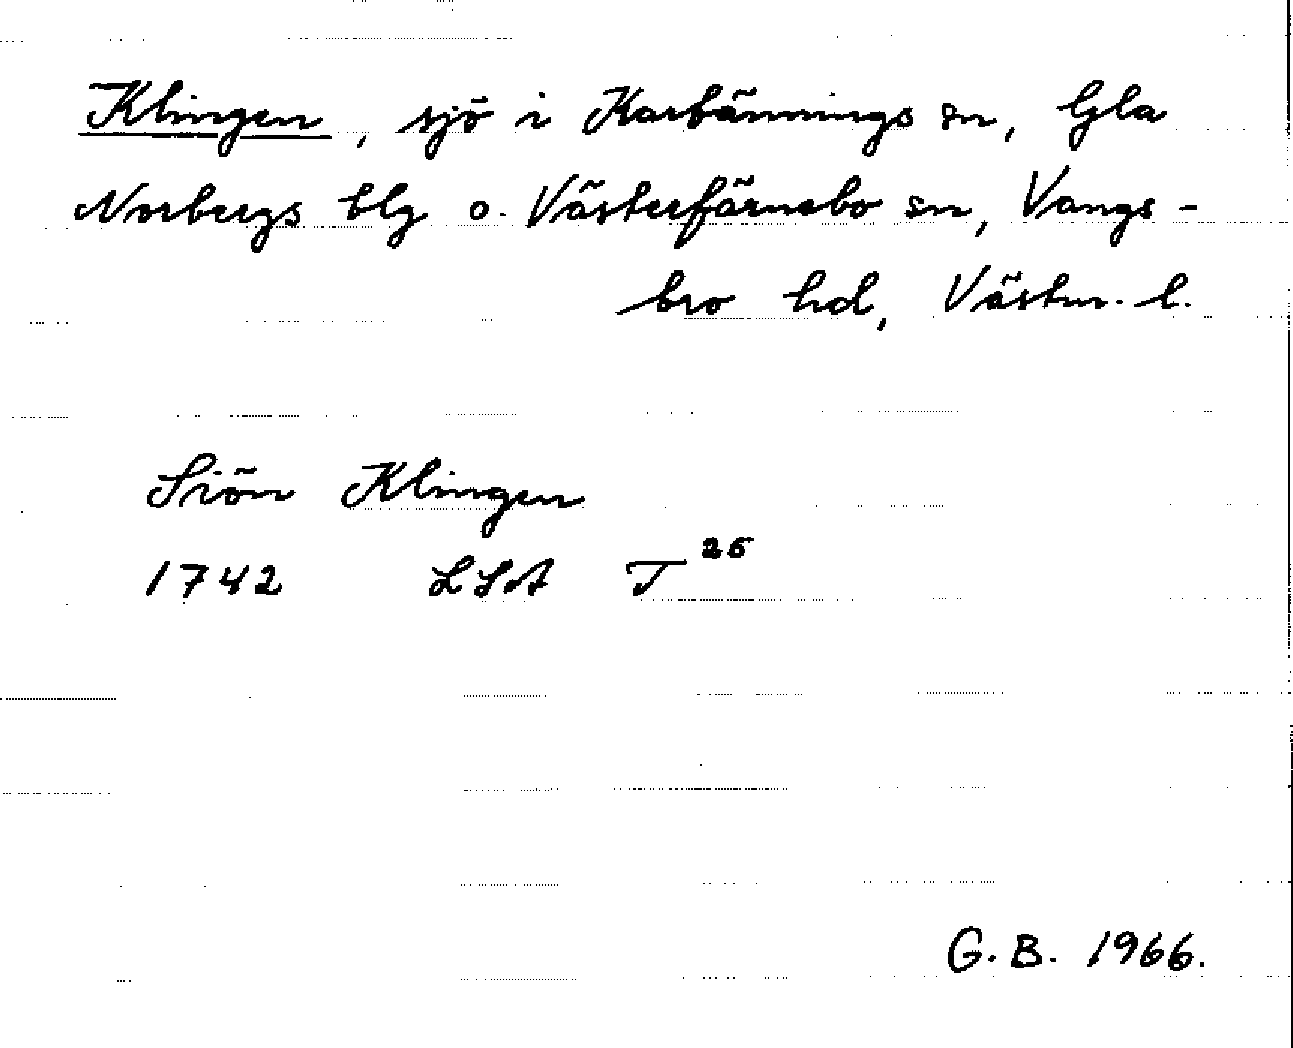 Klingen, sjö i Karbännings sn, Gla
Norbergs blg o. Västerfärnebo sn, Vangs-
bro hd, Västm. l.
Siön Klingen
1742 LSA T 25
G. B. 1966.